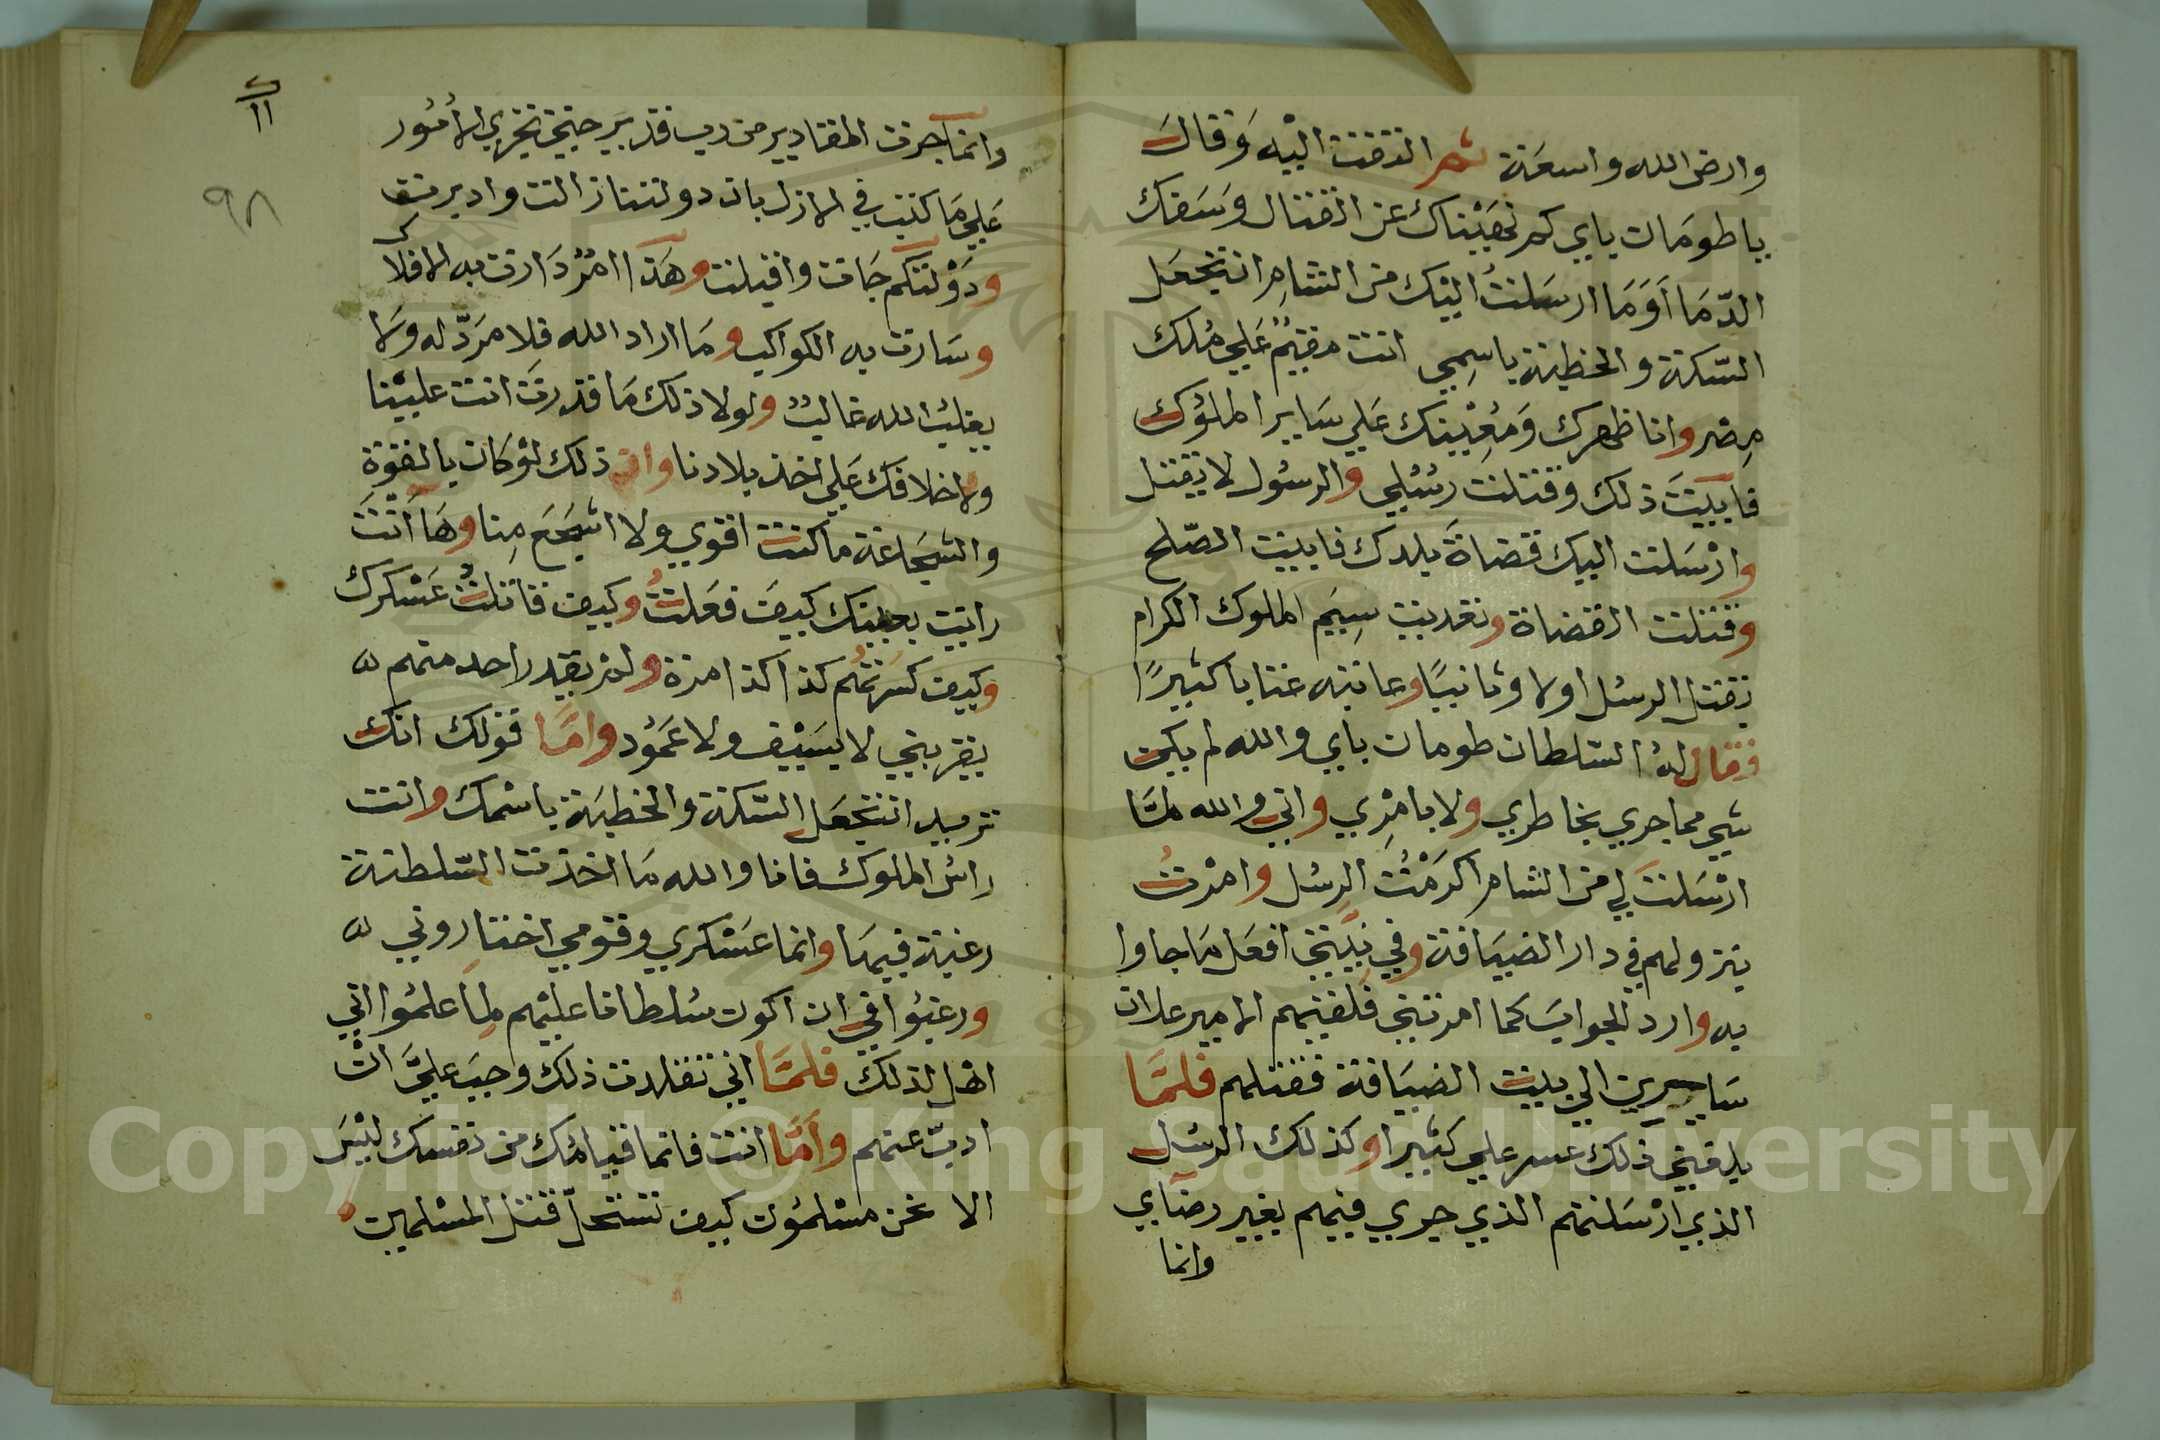 وارض الله واسعة ثم التفت اليه وقال
يا طومان باي كم نهيناك عن القتال وسفك
الدما اوما ارسلت اليك من الشام ان تجعل
السكة والخطبة باسمي انت مقيم علي ملك
مصر وانا ظهرك ومعينك علي ساير الملوك
فابيت ذلك وقتلت رسلي والرسول لا يقتل
وارسلت اليك قضاة بلدك فابيت الصلح
وقتلت القضاة وتعديت سيم الملوك الكرام
بقتل الرسل اولا وثانيا وعاتبه عتابا كثيرا
فقال له السلطان طومان باي والله لم يكن
شي مما جري بخاطري ولا بامري واني والله لما
ارسلت لي من الشام اكرمت الرسل وامرت
بنزولهم في دار الضيافة وفي نيتي افعل ما جاوا
به وارد الجواب كما امرتني فلقيهم الامير علان
ساييرين الي بيت الضيافة فقتلهم فلما
بلغني ذلك عسر علي كثيرا وكذلك الرسل
الذي ارسلتهم الذي جري فيهم بغير رضاي
وانما
١١
٩٨
وانما جرت المقادير من رب قدير حتي تجري الامور
علي ما كتب في الازل بان دولتنا زالت وادبرت
ودولتكم جات واقبلت وهذا امر دارت به الافلاك
وسارت به الكواكب وما اراد الله فلا مرد له ولا
يغلب الله غالب ولولا ذلك ما قدرت انت علينا
ولا خلافك علي اخذ بلادنا وان ذلك لو كان بالقوة
والشجاعة ما كنت اقوي ولا اشجع منا وها انت
رايت بعينك كيف فعلت وكيف قاتلت عسكرك
وكيف كسرتهم كذا كذا مرة ولم يقدر احد منهم
يقربني لا بسيف ولا عمود واما قولك انك
تريد ان تجعل السكة والخطبة باسمك وانت
راس الملوك فانا والله ما اخذت السلطنة
رغبة فيها وانما عسكري وقومي اختاروني
ورغبوا في ان اكون سلطانا عليهم لما علموا اني
اهل لذلك فلما اني تقلدت ذلك وجب علي ان
ادب عنهم واما انت فانما قيامك من نفسك ليس
الا نحن مسلمون كيف تستحل قتل المسلمين